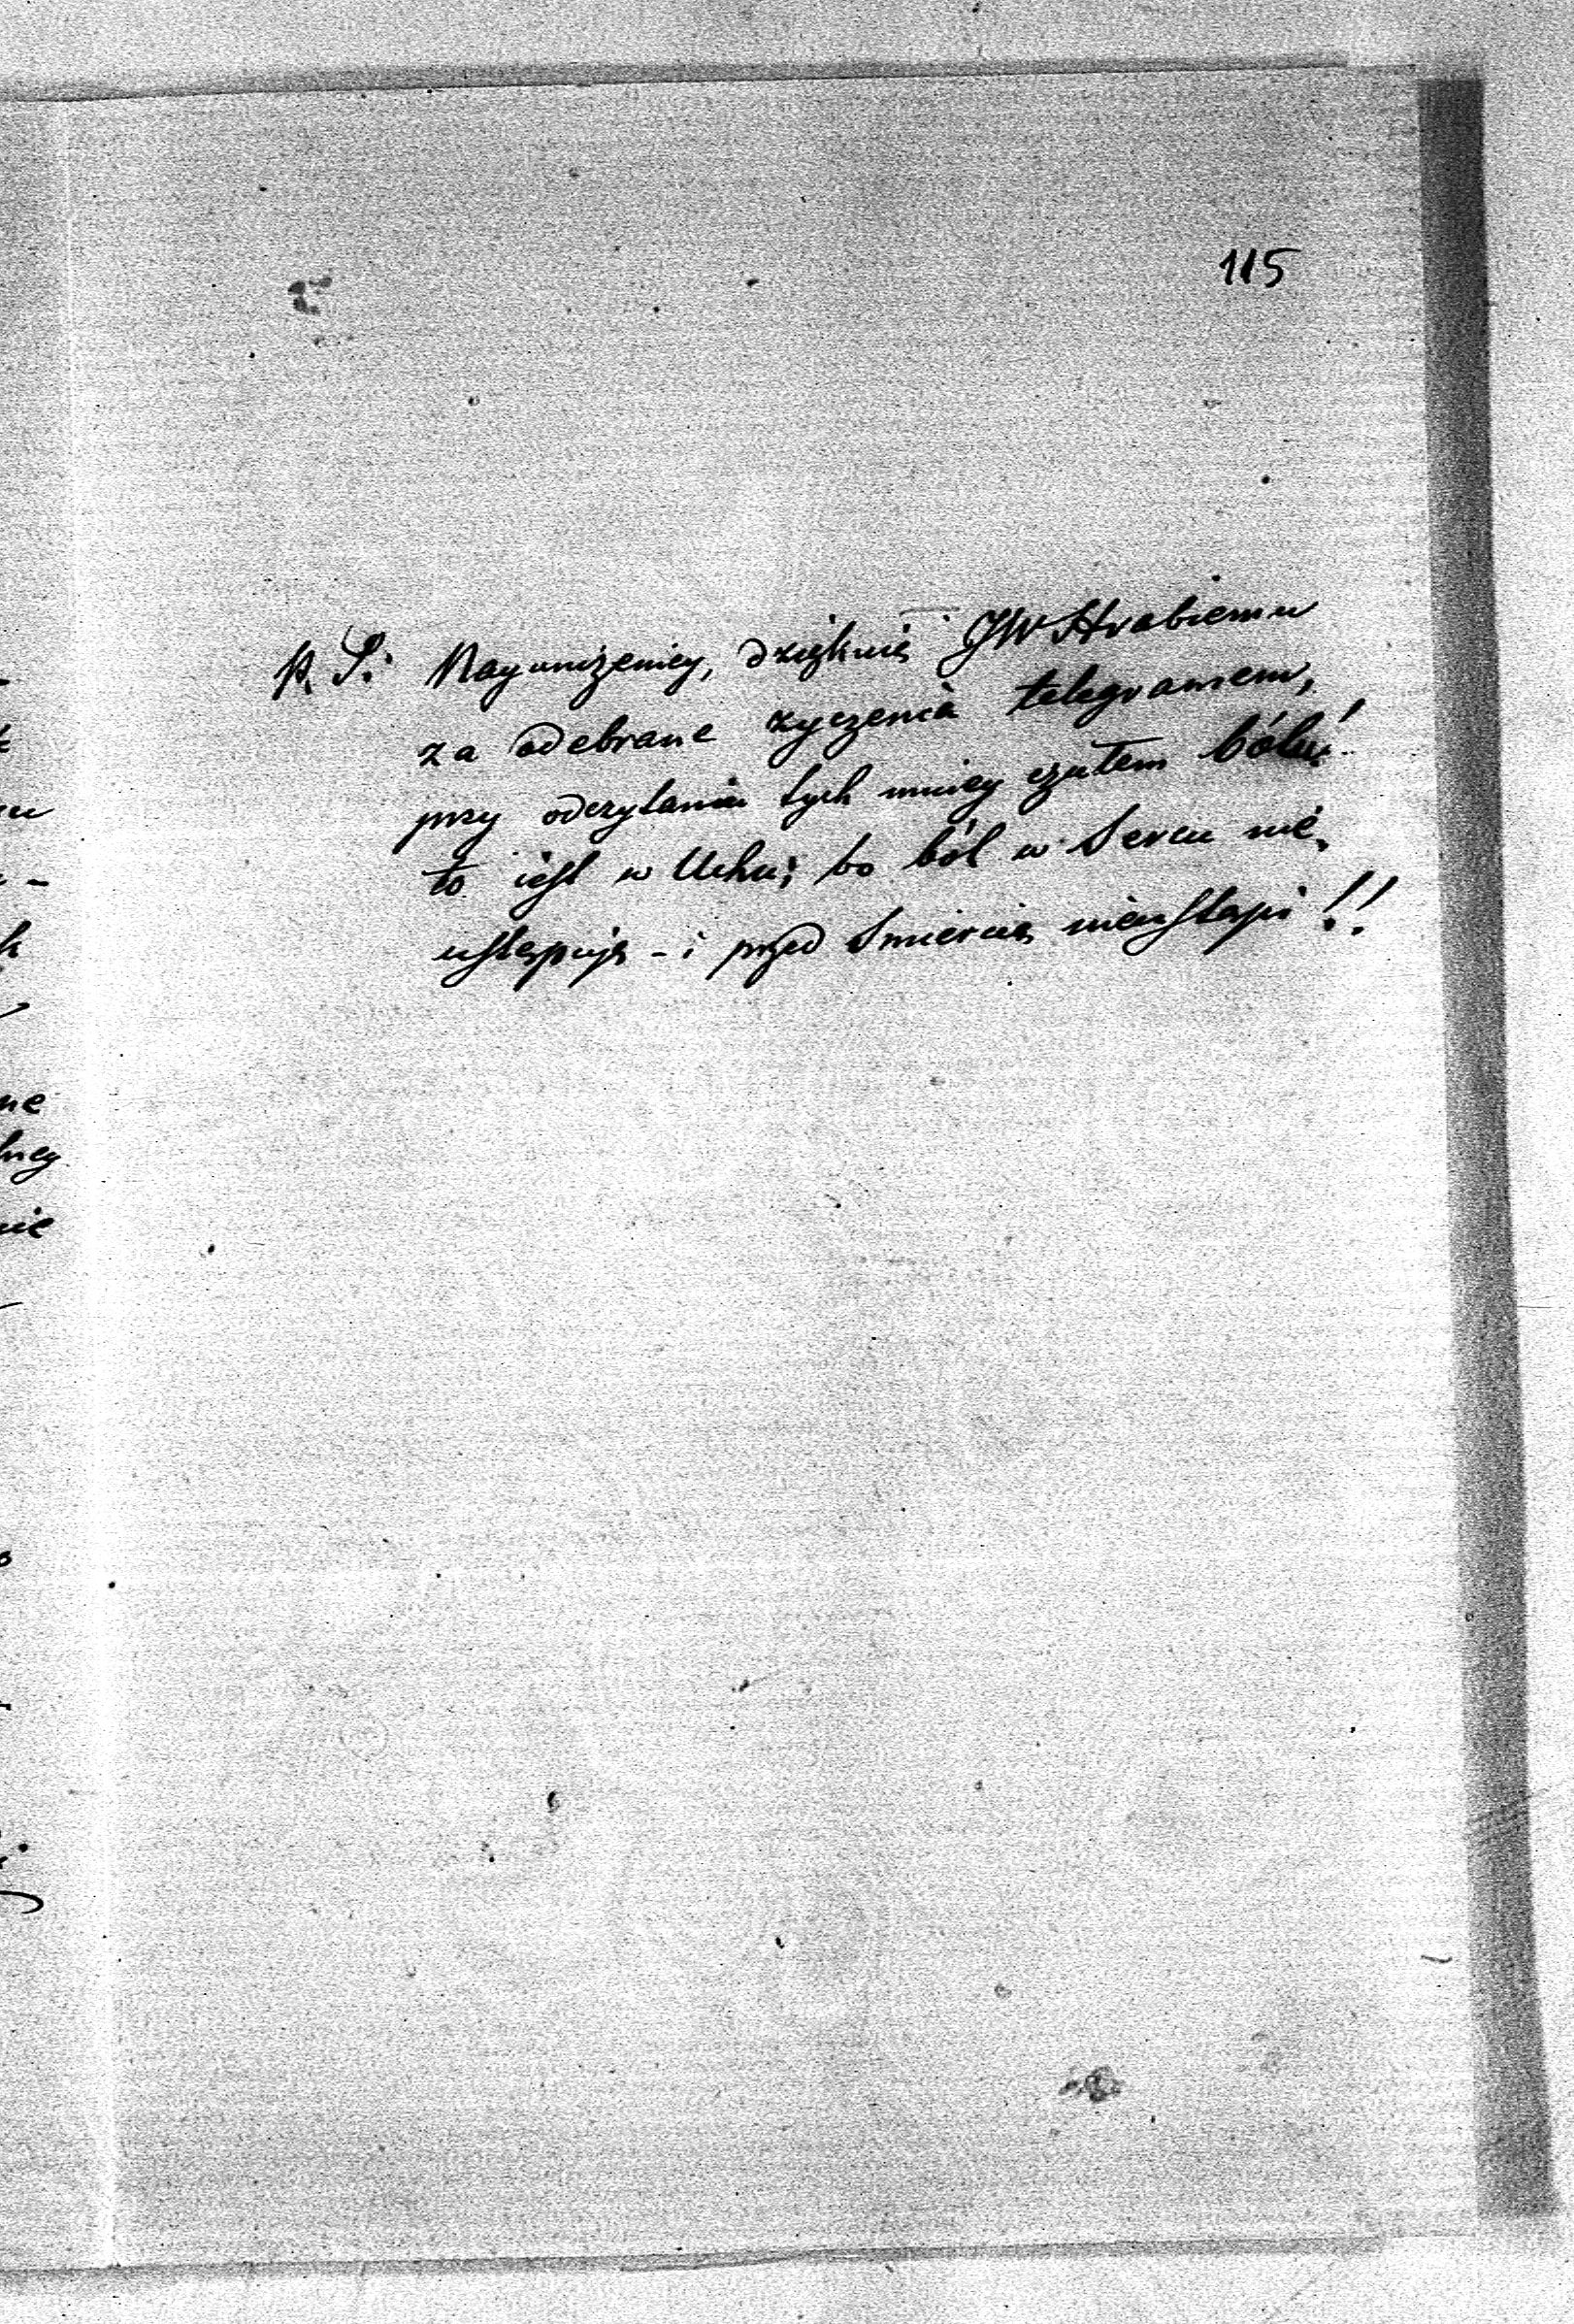 115
P. S: Nayunizeniey, dziękuię JW Hrabiemu
za odebrane zyczenia telegramem,
przy odczytaniu tych mniey czułem bólu!
to iest w Uchu; bo ból w Sercu nie
ustępuję - i przed Smiercią nieustąpi!!
ne
lney
nie